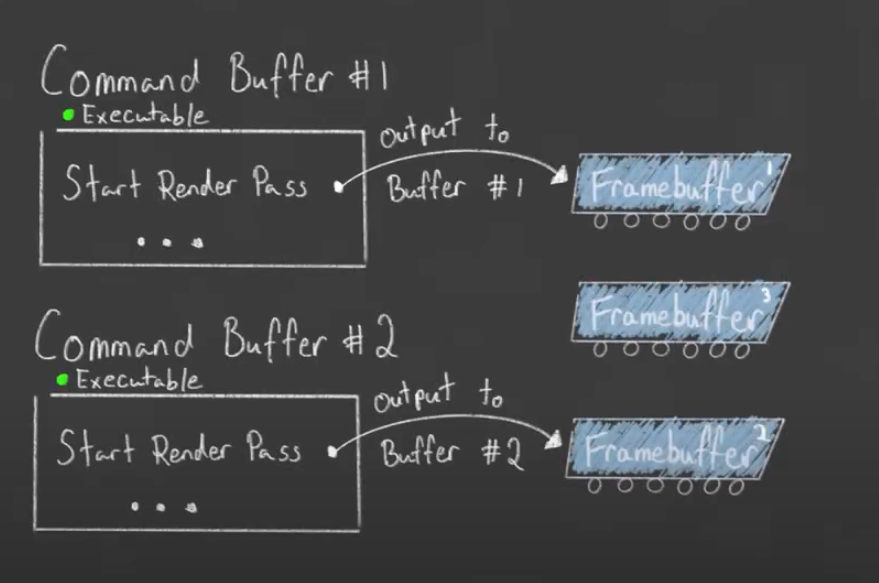 Command Buffer #1
Executable
Start Render Pass
...
output to
Buffer #1
Framebuffer 1
Framebuffer 3
Command Buffer #2
Executable
Start Render Pass
...
output to
Buffer #2
Framebuffer 2